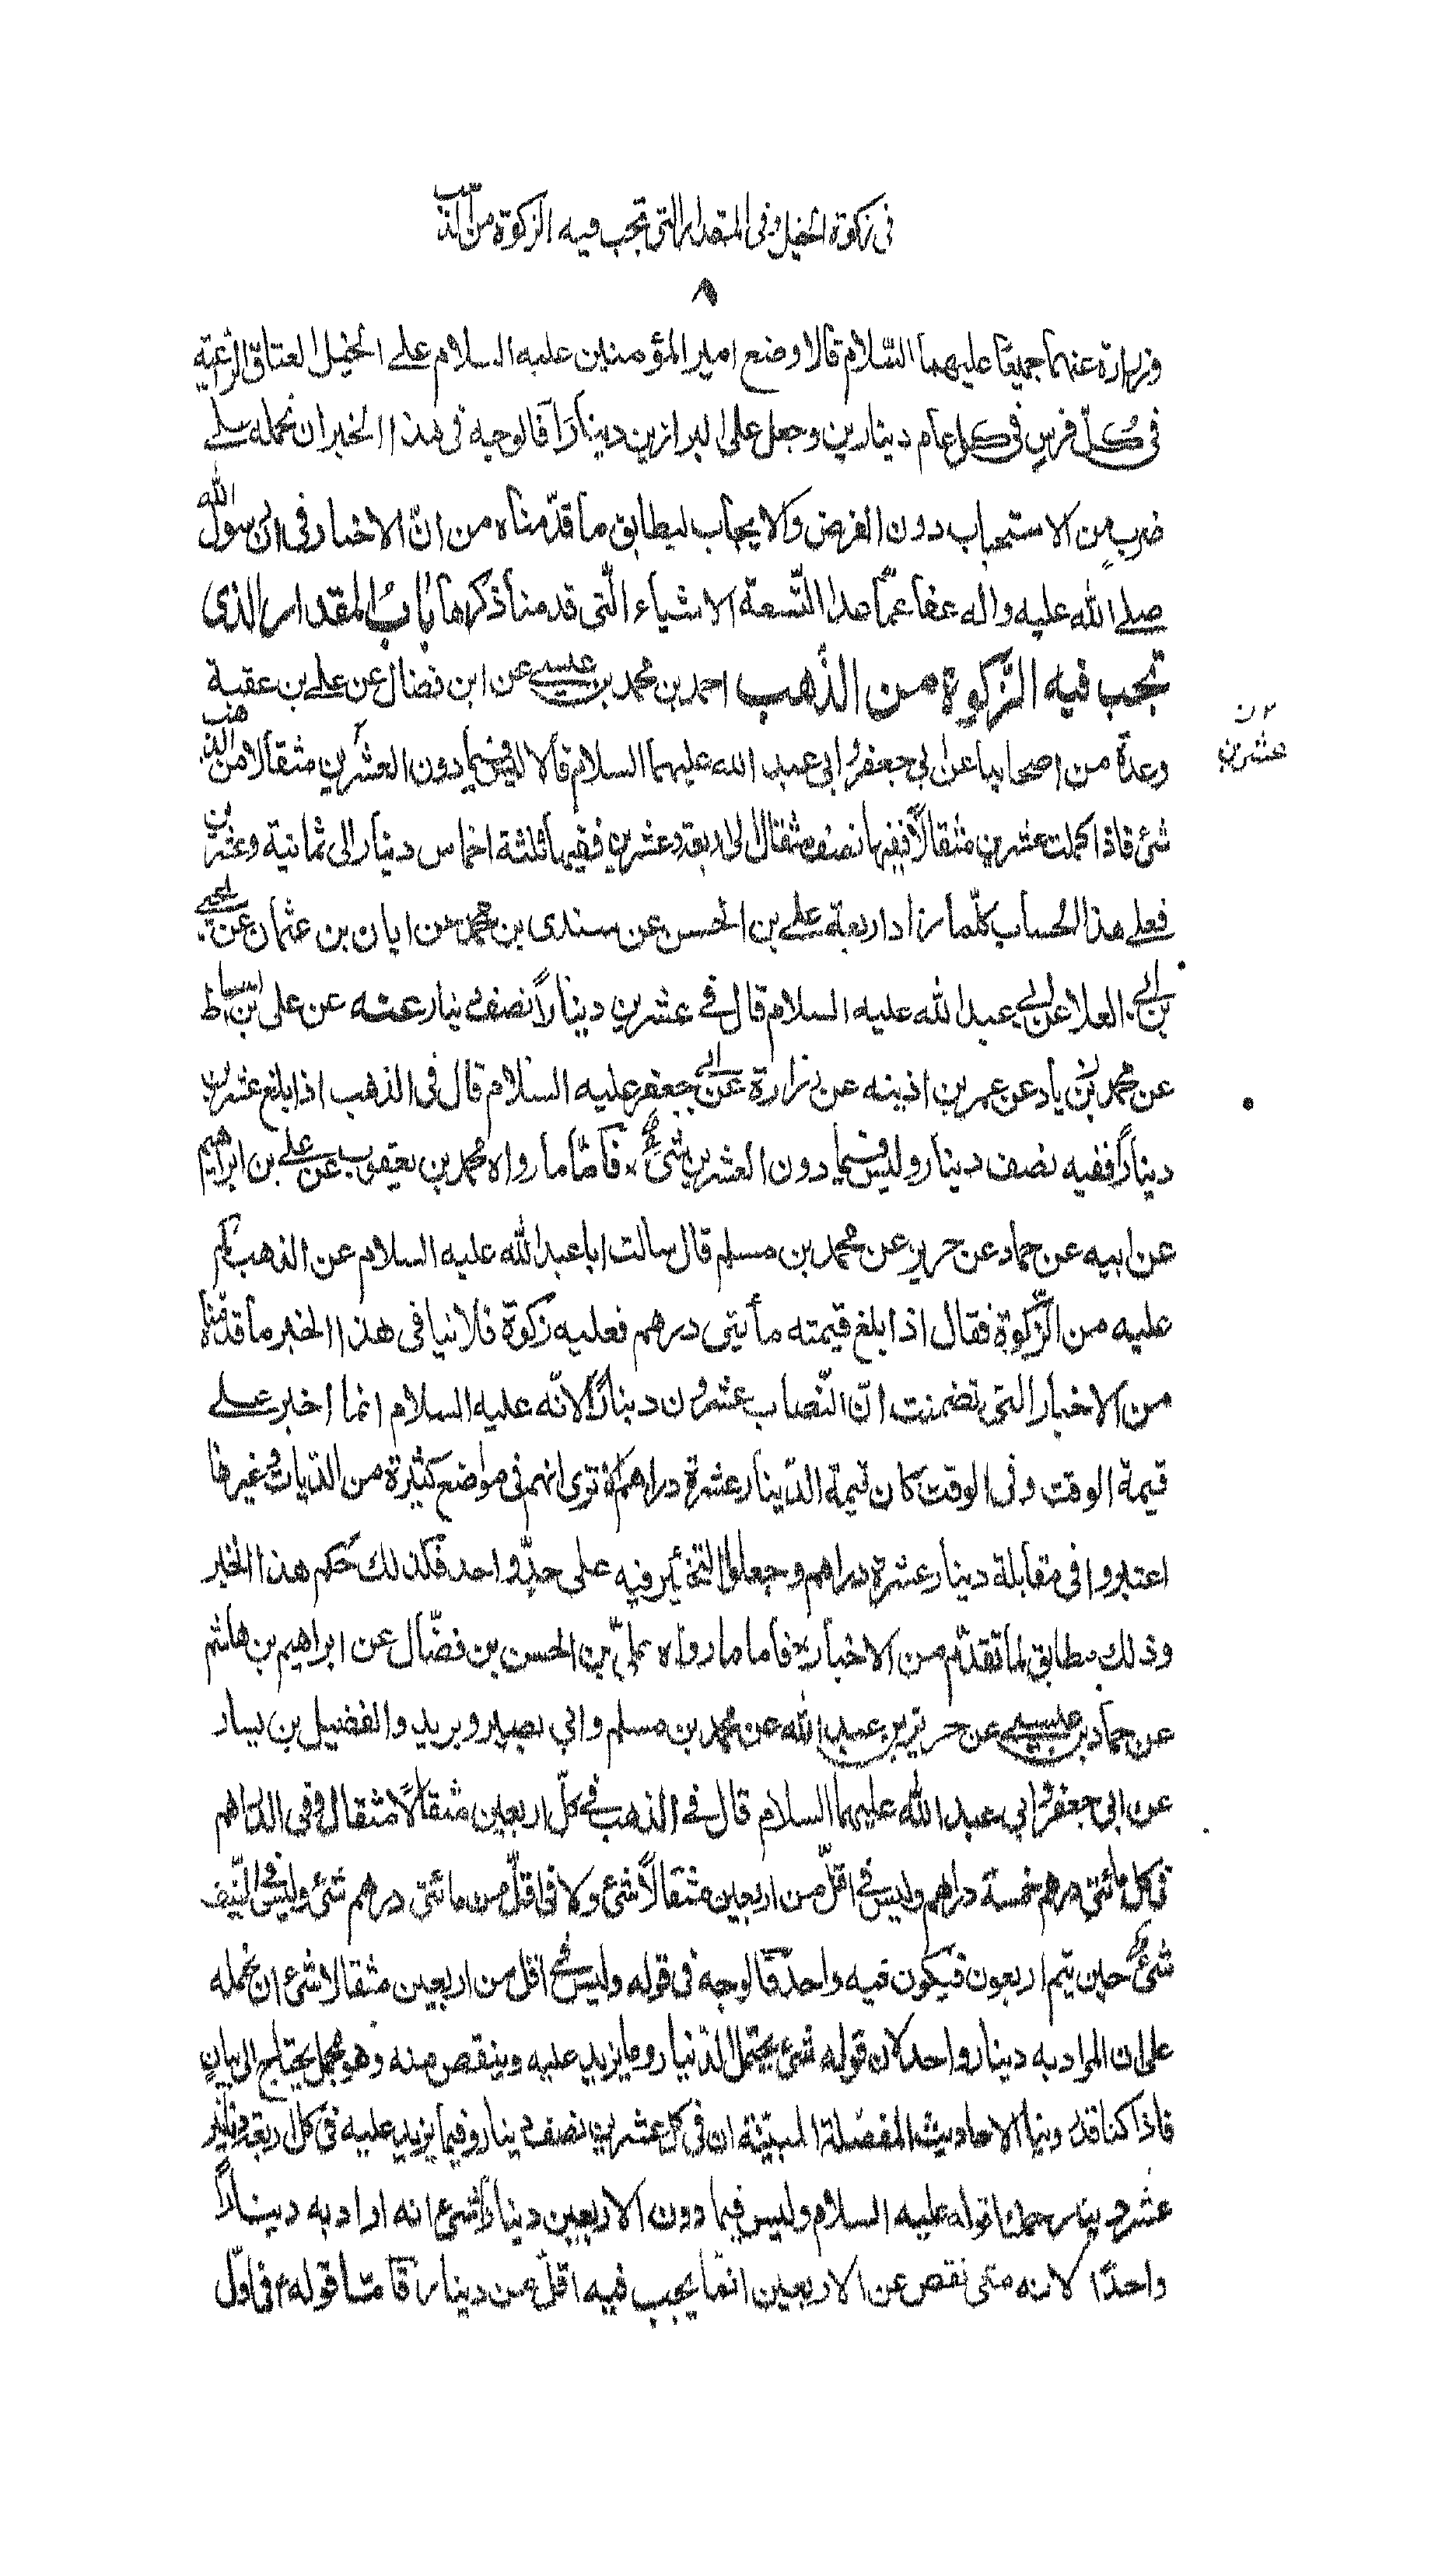 في زكوة الخيل وفى المقدار التى تجب فيه الزكوة من الذهب
٨
وزرارة عنهما جميعًا عليهما السّلام قالا وضع امير المؤمنين عليه السلام على الخيل العتاق الراعية
فى كلّ فرس فى كل عام دينارين وجعل على البراذين دينارًا فالوجه فى هذا الخبر ان نحمله على
ضرب من الاستحباب دون الفرض والايجاب ليطابق ما قدّمناه من انّ الاخبار فى ان رسول الله
صلى الله عليه واله عفا عمّا عدا التّسعة الاشياء الّتى قدمنا ذكرها بابُ المقدار الذى
تجب فيه الزّكوة من الذّهب احمد بن محمد بن عيسى عن ابن فضال عن على بن عقبة
وعدة من اصحابنا عن ابى جعفر وابى عبد الله عليهما السلام قالا ليس فيما دون العشرين مثقالا من الذهب
٢ ن
عشرين
شئ فاذا كملت عشرين مثقالاً ففيها نصف مثقال الى اربعة وعشرين ففيها ثلثة اخماس دينار الى ثمانية وعشرين
فعلى هذا الحساب كلّما زاد اربعة على بن الحسن عن سندى بن محمد عن ابان بن عثمان عن يحيى
بن ابى العلا عن ابى عبد الله عليه السلام قال فى عشرين دينارًا نصف دينار عنه عن على بن اسباط
عن محمد بن زياد عن عمر بن اذينه عن زرارة عن ابى جعفر عليه السلام قال فى الذهب اذا بلغ عشرين
دينارًا ففيه نصف دينار وليس فيما دون العشرين شئ فامّا ما رواه محمد بن يعقوب عن على بن ابراهيم
عن ابيه عن حماد عن حريز عن محمد بن مسلم قال سالت ابا عبد الله عليه السلام عن الذهب كم
عليه من الزّكوة فقال اذا بلغ قيمته مأتى درهم فعليه زكوة فلا ينافى هذا الخبر ما قدّمناه
من الاخبار التى تضمنت انّ النّصاب عشرون دينارًا لانّه عليه السلام انما اخبر على
قيمة الوقت وفى الوقت كان قيمة الدّينار عشرة دراهم الا ترى انهم فى مواضع كثيرة من الديات وغيرها
اعتبروا فى مقابلة دينار عشرة دراهم وجعلوا التخيير فيه على حدّ واحد فكذلك حكم هذا الخبر
وذلك مطابق لما تقدّم من الاخبار فاما ما رواه علىّ بن الحسن بن فضّال عن ابراهيم بن هاشم
عن حماد بن عيسى عن حريز بن عبد الله عن محمد بن مسلم وابي بصير وبريد والفضيل بن يسار
عن ابى جعفر وابى عبد الله عليهما السلام قال فى الذهب فى كلّ اربعين مثقالاً مثقال وفى الدراهم
فى كل مائتى درهم خمسة دراهم وليس فى اقلّ من اربعين مثقالاً شئ ولا فى اقلّ من مائتى درهم شئ وليس فى النّيف
شئ حين يتم اربعون فيكون فيه واحد فالوجه فى قوله وليس فى اقل من اربعين مثقالا شئ ان نحمله
على ان المراد به دينار واحد لان قوله شئ يحتمل الدّينار وما يزيد عليه وينقص منه وهو مجمل يحتاج الى بيان
فاذا كنا قد روينا الاحاديث المفصّلة المبيّنة ان فى كل عشرين نصف دينار وفيما يزيد عليه فى كل اربعة دنانير
عشر دينار حملنا قوله عليه السلام وليس فيما دون الاربعين دينارًا شئ انه اراد به دينارًا
واحدًا لانه متى نقص عن الاربعين انّما يجب فيه اقلّ من دينار فامّا قوله فى اوّل